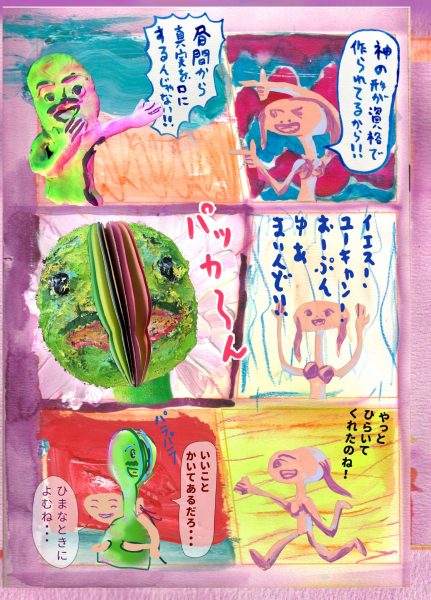 神の形が資格で
作られてるから!!
昼間から
真実を口に
するんじゃない!!
イエスー・
ユーキャン!
おーぷん
ゆあ
まいんど!!
パッカ〜ん
やっと
ひらいて
くれたのね!
パラパラ
いいこと
かいてあるだろ・・・
ひまなときに
よむね・・・